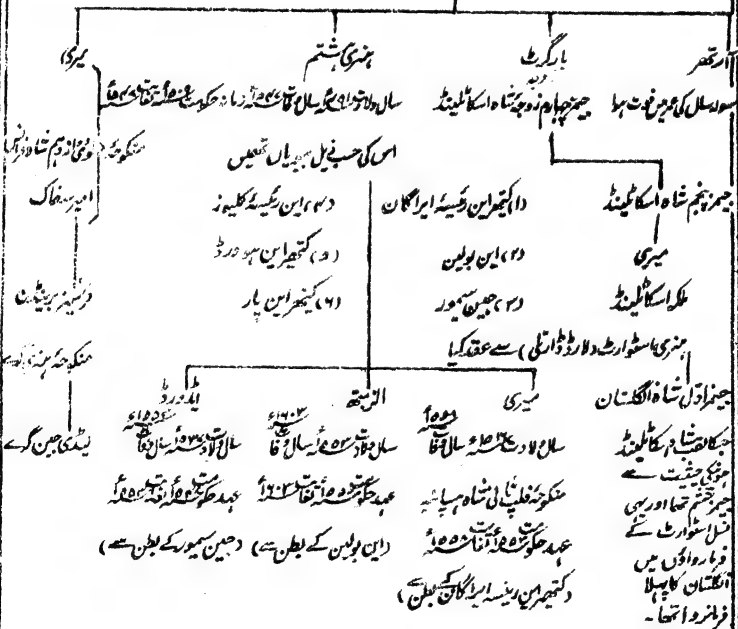 آرتھر
سولہ سال کی عمر میں فوت ہوا
مارگرٹ
زوجہ
جیمز چہارم شاہ اسکاٹلینڈ
جیمز پنجم شاہ اسکاٹلینڈ
میری
ملکہ اسکاٹلینڈ
ہنری اسٹوارٹ (لارڈ ڈارنلی) سے عقد کیا
جیمز اول شاہ انگلستان
جسکا لقب شاہ اسکاٹلینڈ
ہونیکی حیثیت سے
جیمز ششم تھا اور یہی
نسل اسٹوارٹ کے
فرمارواؤں میں
انگلستان کا پہلا
فرمانروا تھا۔
ہنری ہشتم
سال ولادت ۱۴۹۱ء سال وفات ۱۵۴۷ء زمانہ حکومت ۱۵۰۹ء لغایت
اس کی حسب ذیل بیویاں تھیں
(۱) کیتھراین رئیسہ ایراگان
(۲) این بولین
(۳) جین سیمور
(۴) این رئیسہ کلیوز
(۵) کیتھراین ہوورڈ
(۶) کیتھراین پار
میری
سال ولادت سال وفات ۱۵۵۸ء
منکوحہ فلپ ثانی شاہ ہسپانیہ
عہد حکومت ۱۵۵۳ء لغایت ۱۵۵۸ء
(کیتھراین رئیسہ ایراگان کے بطن سے)
الزبتھ
سال ولادت ۱۵۳۳ء سال وفات ۱۶۰۳ء
عہد حکومت ۱۵۵۸ء لغایت ۱۶۰۳ء
(این بولین کے بطن سے)
ایڈورڈ
سال ولادت ۱۵۳۷ء سال وفات ۱۵۵۳ء
عہد حکومت ۱۵۴۷ء لغایت ۱۵۵۳ء
(جین سیمور کے بطن سے)
میری
منکوحہ لوئی دوازدہم شاہ فرانس
امیر سفاک
فرانسیز برینڈن
منکوحہ ہنری گرے
لیڈی جین گرے